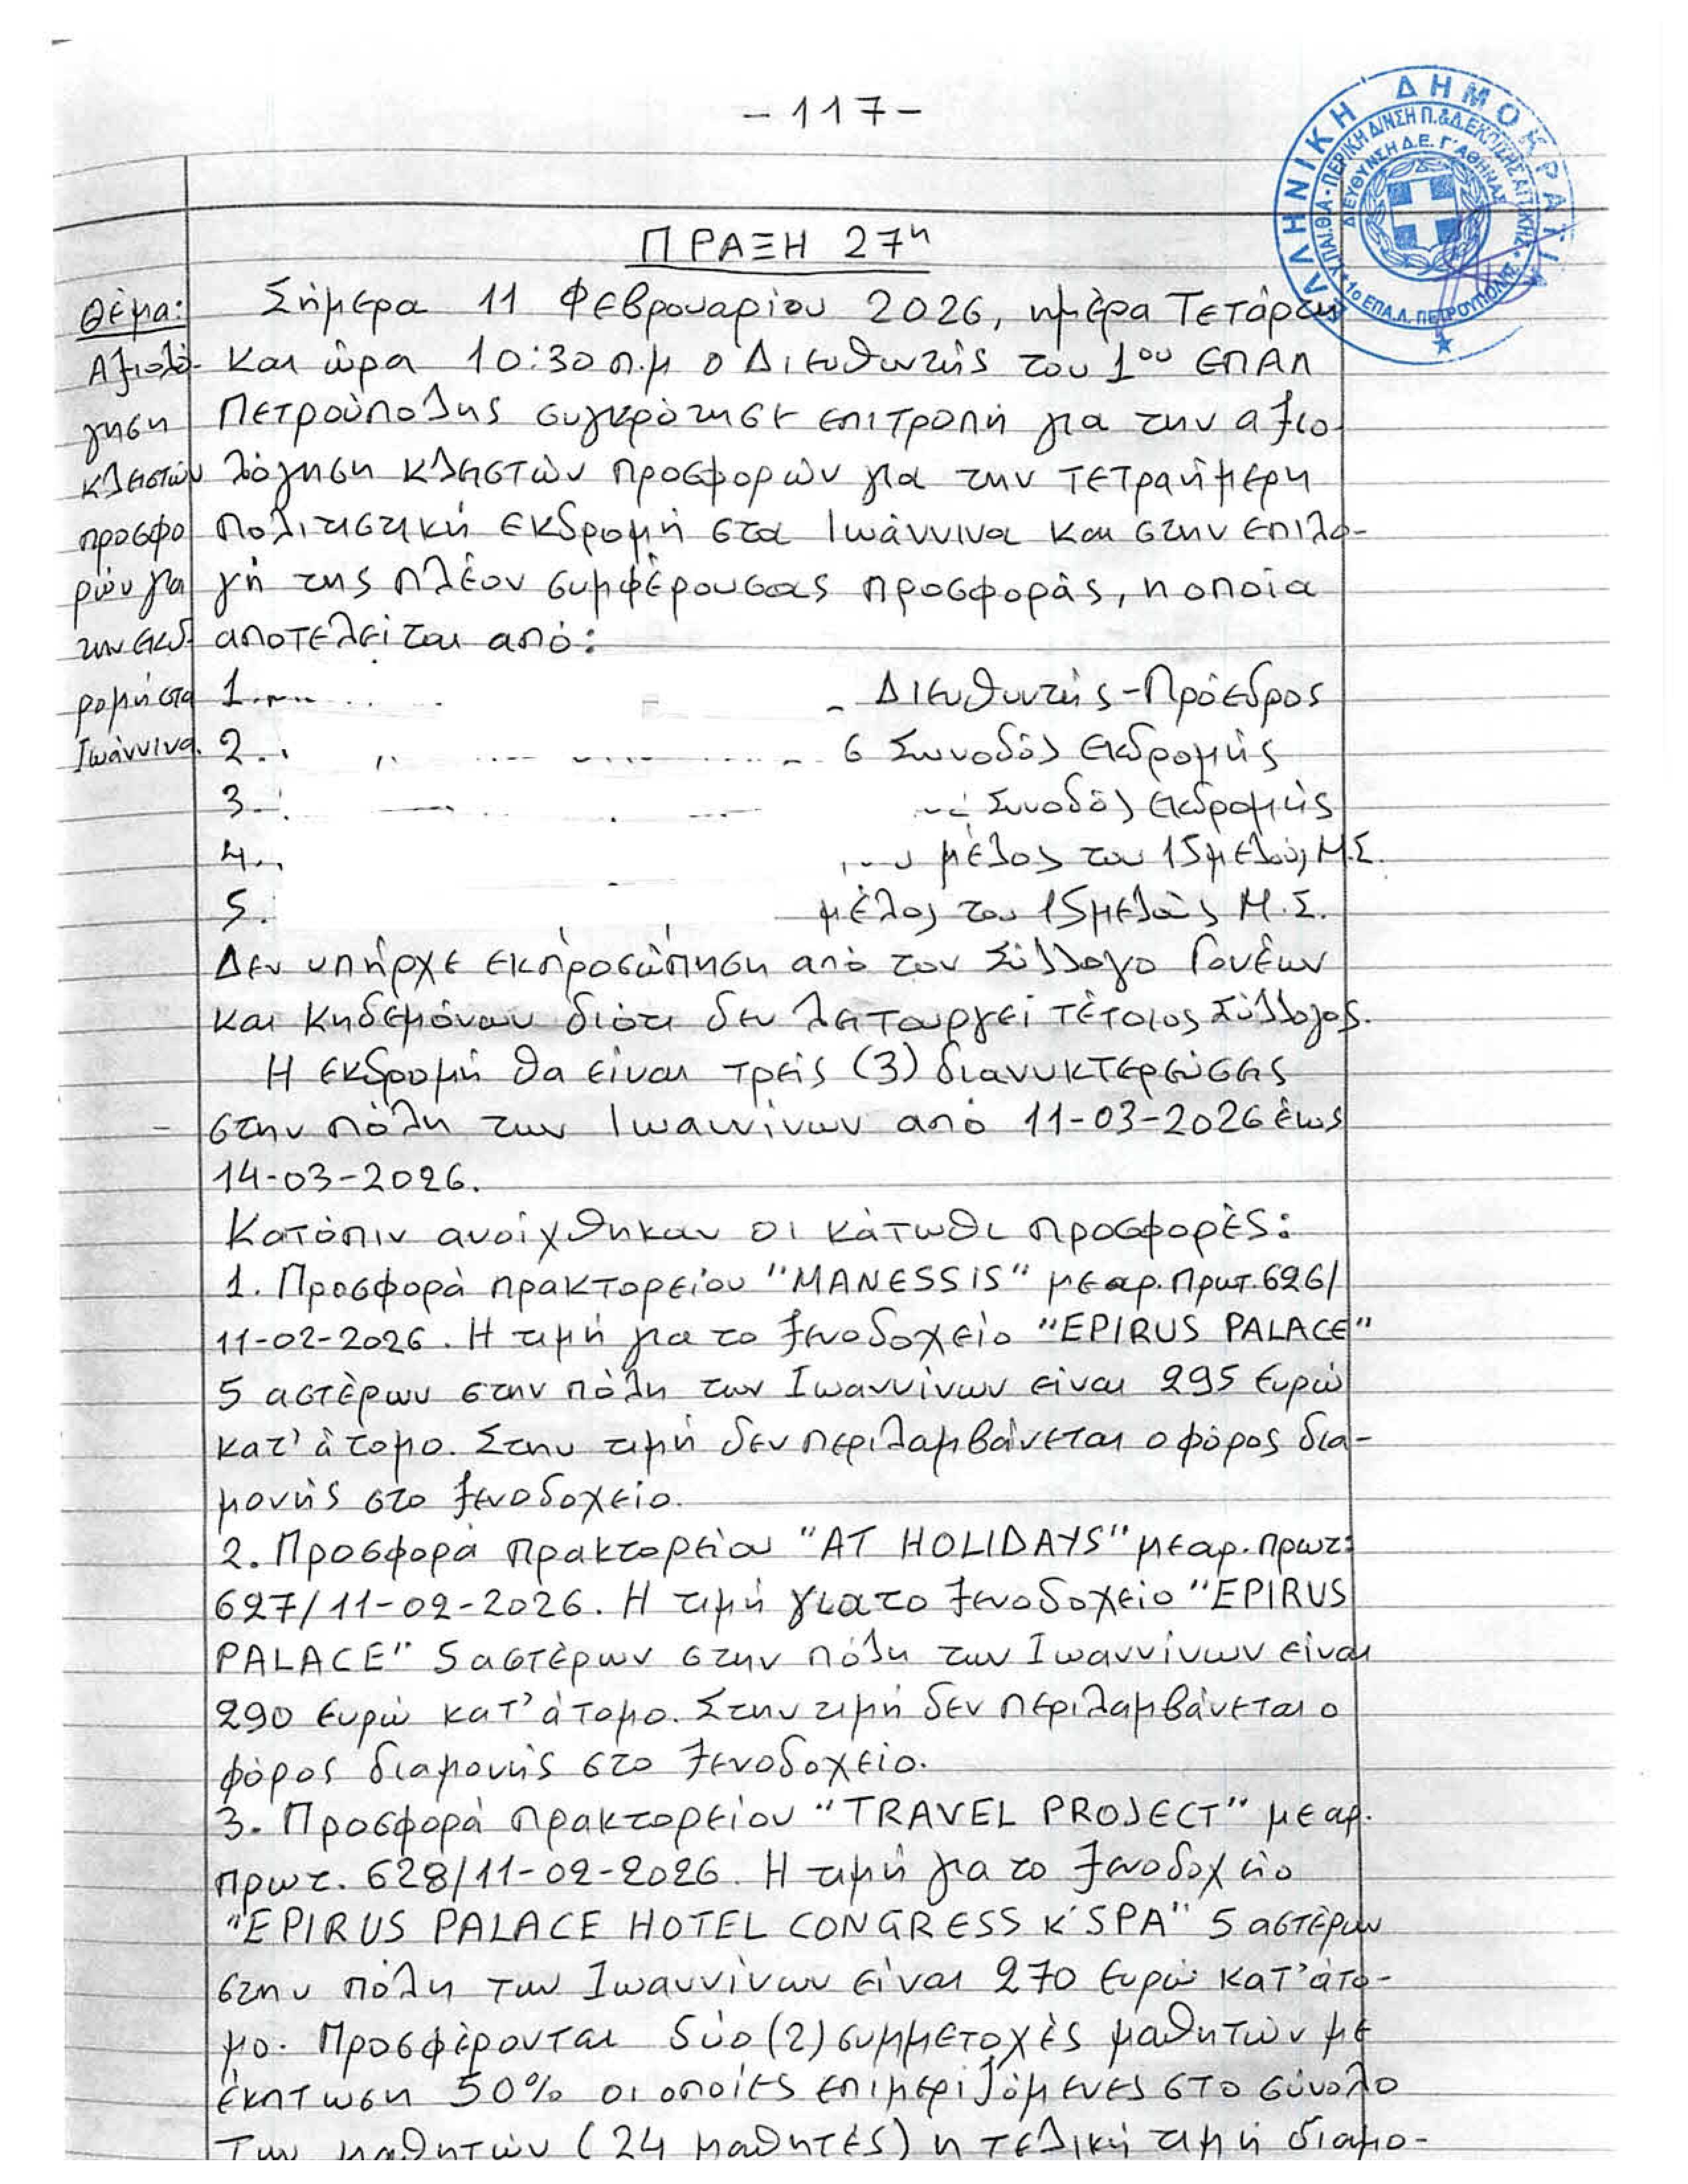 -117-
ΕΛΛΗΝΙΚΗ ΔΗΜΟΚΡΑΤΙΑ
ΥΠΑΙ.Θ.Α - ΠΕΡΙΚΗ Δ/ΝΣΗ Π.&Δ.ΕΚΠ/ΣΗΣ ΑΤΤΙΚΗΣ
ΔΙΕΥΘΥΝΣΗ Δ.Ε. Γ΄ ΑΘΗΝΑΣ
1ο ΕΠΑ.Λ. ΠΕΤΡΟΥΠΟΛΗΣ
ΠΡΑΞΗ 27η
Θέμα:
Αξιολό-
γηση
κλειστών
προσφο
ρών για
την εκδ-
ρομή στα
Ιωάννινα.
Σήμερα 11 Φεβρουαρίου 2026, ημέρα Τετάρτη
και ώρα 10:30 π.μ ο Διευθυντής του 1ου ΕΠΑΛ
Πετρούπολης συγκρότησε επιτροπή για την αξιο-
λόγηση κλειστών προσφορών για την τετραήμερη
πολιτιστική εκδρομή στα Ιωάννινα και στην επιλο-
γή της πλέον συμφέρουσας προσφοράς, η οποία
αποτελείται από:
1. Διευθυντής-Πρόεδρος
2. Συνοδός εκδρομής
3. Συνοδός εκδρομής
4. μέλος του 15μελούς Μ.Σ.
5. μέλος του 15μελούς Μ.Σ.
Δεν υπήρχε εκπροσώπηση από τον Σύλλογο Γονέων
και Κηδεμόνων διότι δεν λειτουργεί τέτοιος Σύλλογος.
Η εκδρομή θα είναι τρεις (3) διανυκτερεύσεις
στην πόλη των Ιωαννίνων από 11-03-2026 έως
14-03-2026.
Κατόπιν ανοίχθηκαν οι κάτωθι προσφορές:
1. Προσφορά πρακτορείου "MANESSIS" με αρ. πρωτ. 626/
11-02-2026. Η τιμή για το ξενοδοχείο "EPIRUS PALACE"
5 αστέρων στην πόλη των Ιωαννίνων είναι 295 Ευρώ
κατ' άτομο. Στην τιμή δεν περιλαμβάνεται ο φόρος δια-
μονής στο ξενοδοχείο.
2. Προσφορά πρακτορείου "AT HOLIDAYS" με αρ. πρωτ:
627/11-02-2026. Η τιμή για το ξενοδοχείο "EPIRUS
PALACE" 5 αστέρων στην πόλη των Ιωαννίνων είναι
290 Ευρώ κατ' άτομο. Στην τιμή δεν περιλαμβάνεται ο
φόρος διαμονής στο ξενοδοχείο.
3. Προσφορά πρακτορείου "TRAVEL PROJECT" με αρ.
πρωτ. 628/11-02-2026. Η τιμή για το ξενοδοχείο
"EPIRUS PALACE HOTEL CONGRESS K'SPA" 5 αστέρων
στην πόλη των Ιωαννίνων είναι 270 Ευρώ κατ' άτο-
μο. Προσφέρονται δύο (2) συμμετοχές μαθητών με
έκπτωση 50% οι οποίες επιμεριζόμενες στο σύνολο
των μαθητών (24 μαθητές) η τελική τιμή διαμο-